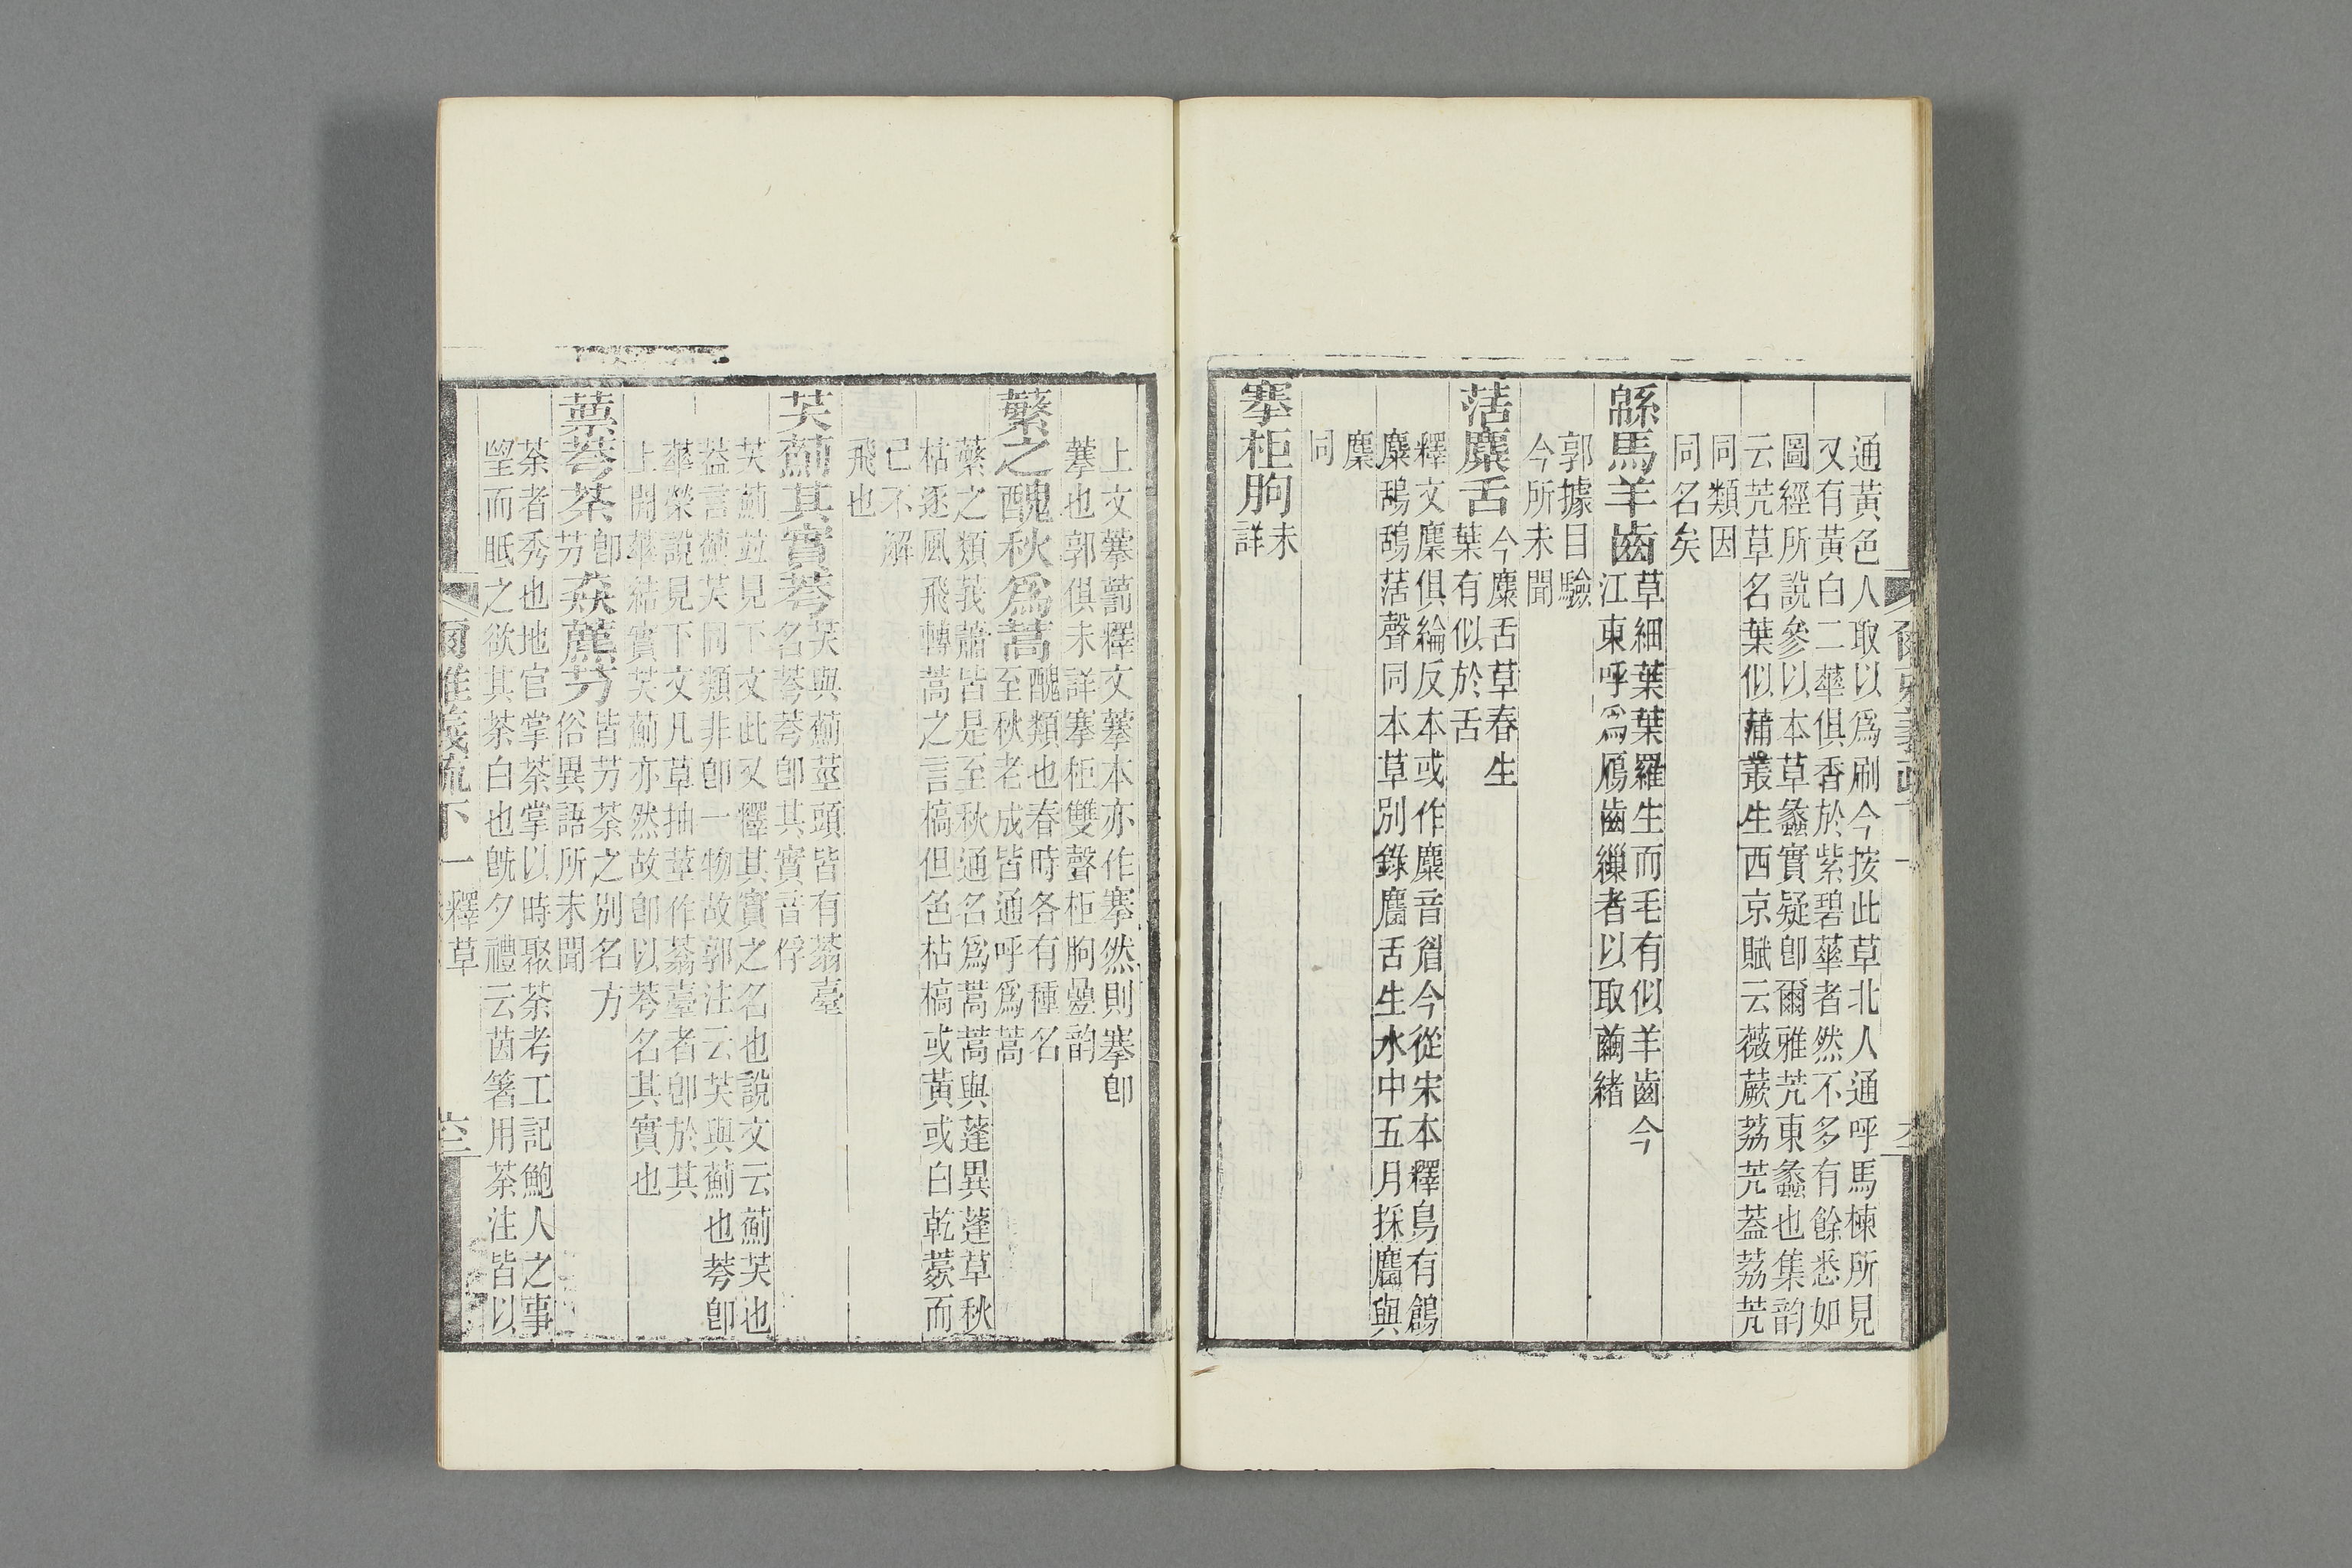 通黃色人取以爲刷今按此草北人通呼馬楝所見
又有黃白二蕐俱香於紫碧蕐者然不多有餘悉如
圖經所說參以本草蠡實疑卽爾雅荓東蠡也集韵
云荓草名葉似蒲叢生西京賦云薇蕨荔荓葢荔荓
同類因
同名矣
緜馬羊齒
草細葉葉羅生而毛有似羊齒今
江東呼爲鴈齒繅者以取繭緖
郭據目驗
今所未聞
萿麋舌
今麋舌草春生
葉有似於舌
釋文麇俱綸反本或作麋音眉今從宋本釋鳥有鶬
麋鴰鴰萿聲同本草別錄麕舌生水中五月採麕與
麇
同
搴柜朐
未
詳
上文藆䕭釋文藆本亦作搴然則搴卽
藆也郭俱未詳搴柜雙聲柜朐疊韵
蘩之醜秋爲蒿
醜類也春時各有種名
至秋老成皆通呼爲蒿
蘩之類莪蕭皆是至秋通名爲蒿蒿與蓬異蓬草秋
枯逐風飛轉蒿之言槁但色枯槁或黃或白乾薎而
已不解
飛也
芺薊其實荂
芺與薊莖頭皆有蓊臺
名荂荂卽其實音俘
芺薊竝見下文此又釋其實之名也說文云薊芺也
葢言薊芺同類非卽一物故郭注云芺與薊也荂卽
蕐榮說見下文凡草抽莖作蓊臺者卽於其
上開蕐結實芺薊亦然故卽以荂名其實也
蔈荂荼
卽
芀
猋藨芀
皆芀荼之別名方
俗異語所未聞
荼者秀也地官掌荼掌以時聚荼考工記鮑人之事
望而眡之欲其荼白也旣夕禮云茵箸用荼注皆以
爾雅義疏下一
釋草